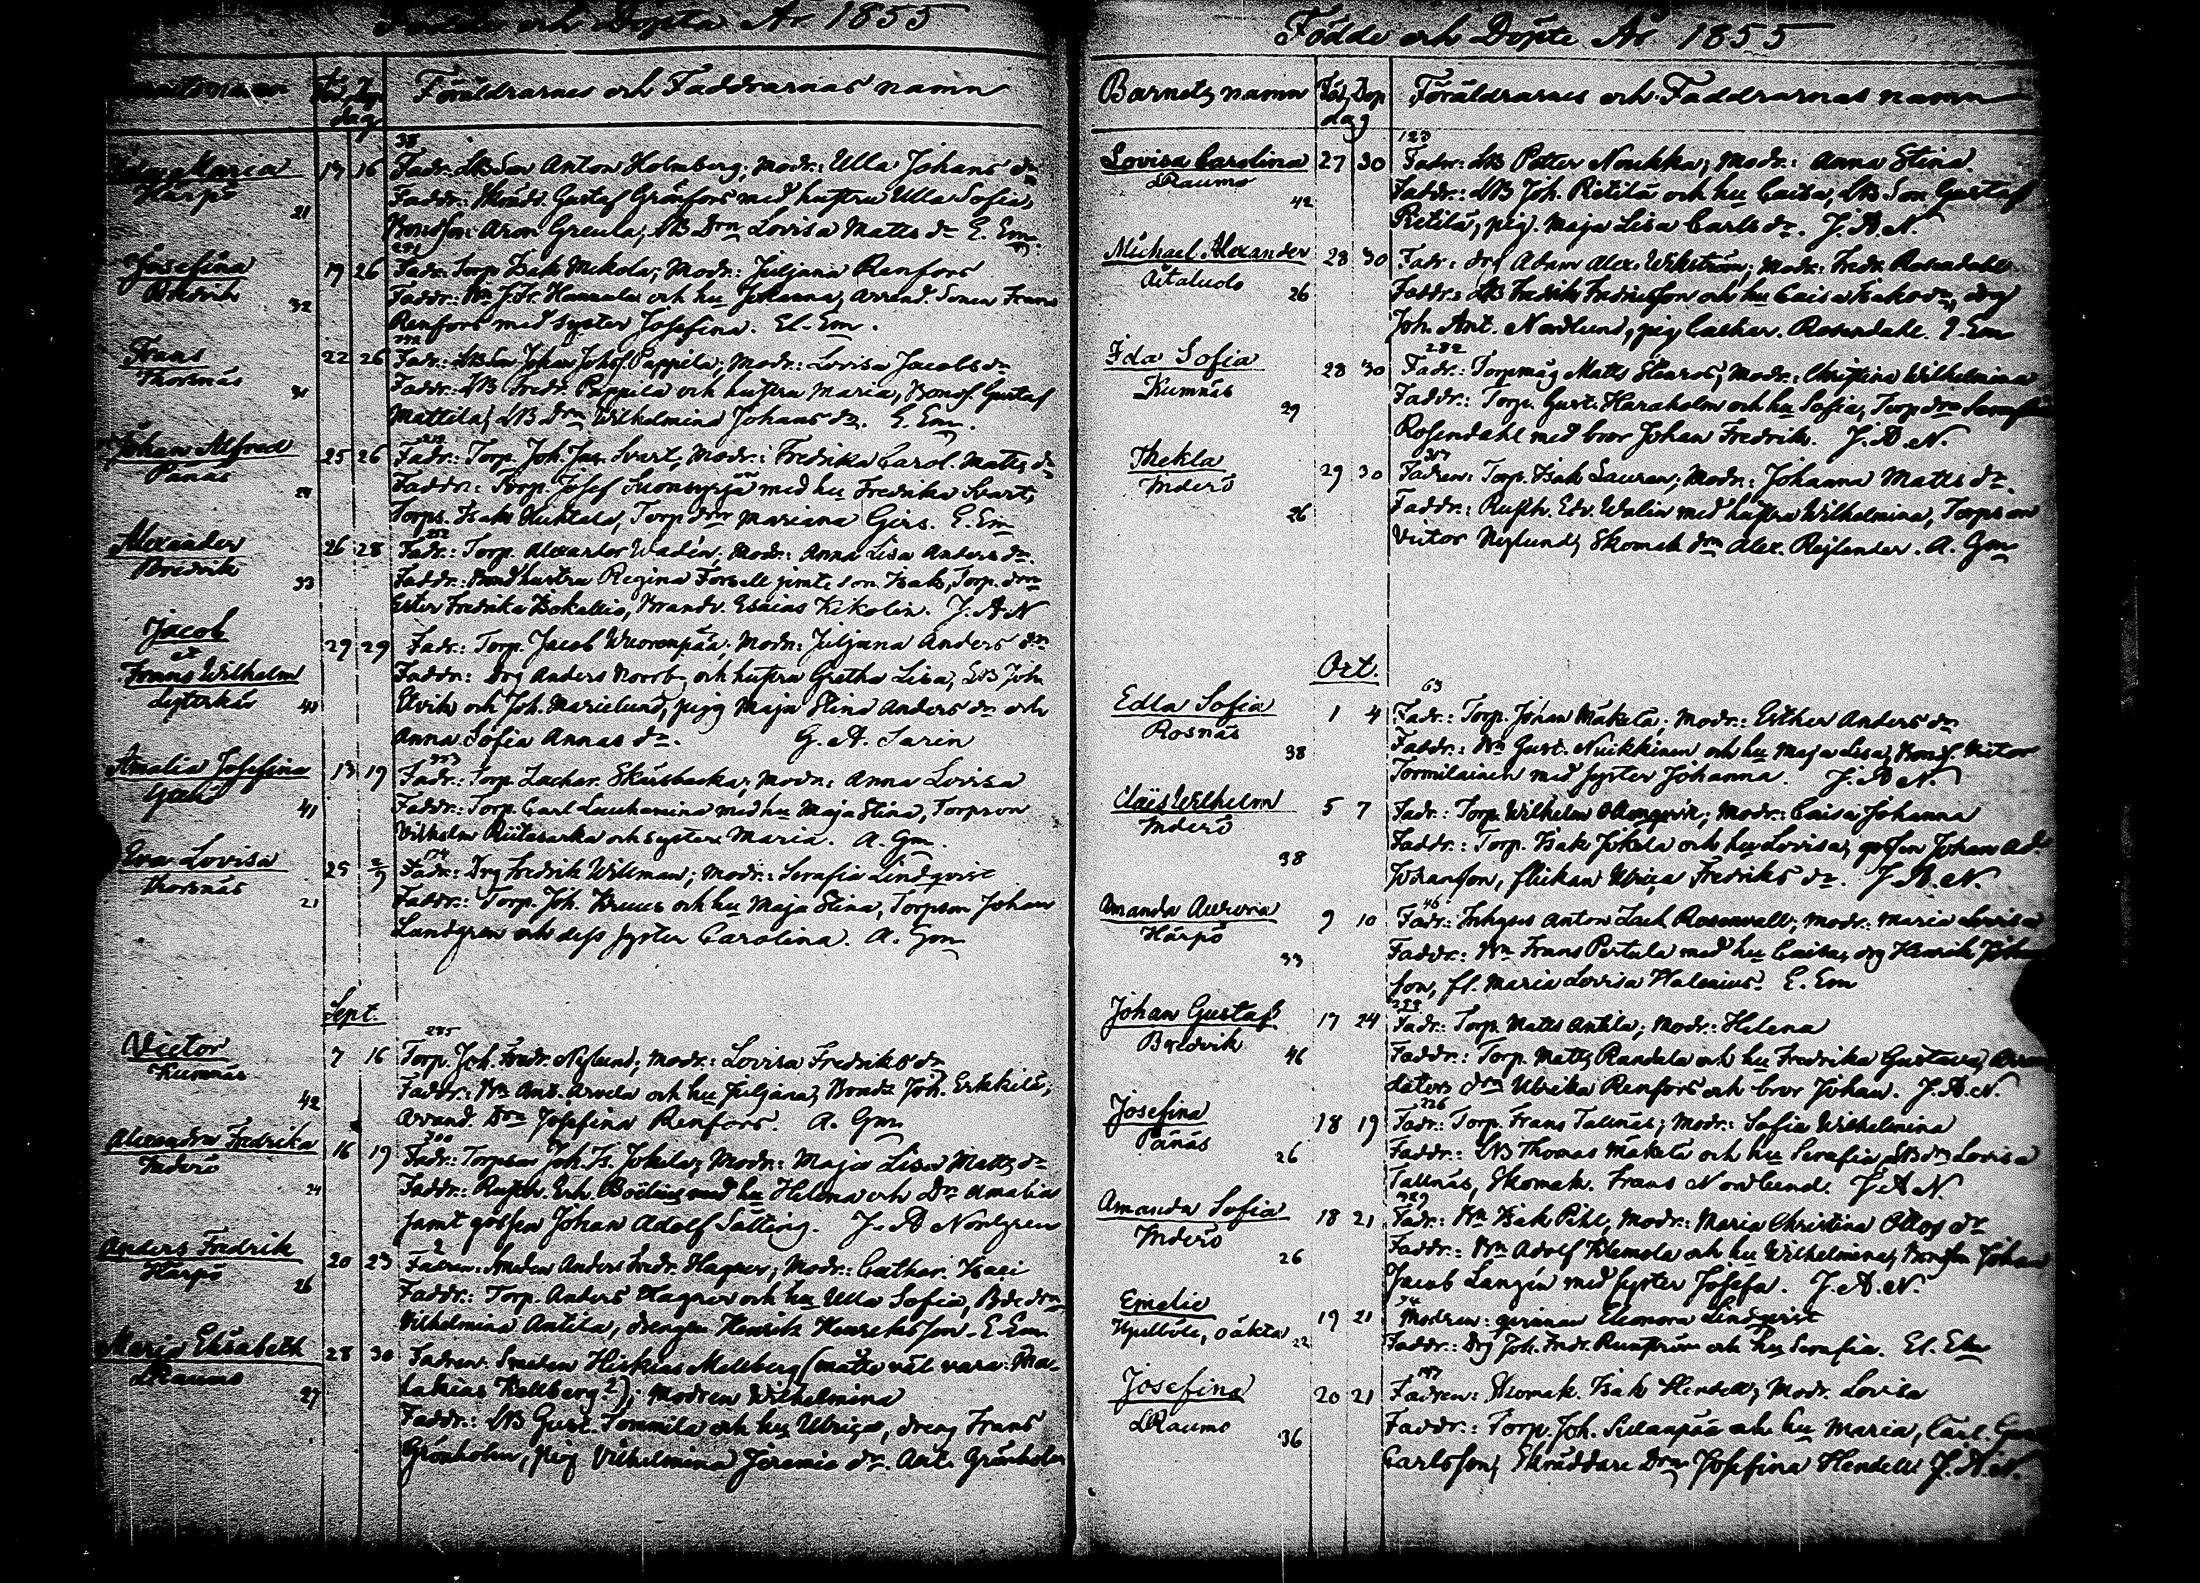 Födde och Döpta År 1855
Föd. Döp.
dag
Föräldrarnes och Faddrarnas namn
Maria
Härpö
21
13 16
38
Fadr: LB Son Anton Holmberg; Modr: Ulla Johans dr
Faddr: Skrädd. Gustaf Grönfors med hustru Ulla Sofia,
Bondson Aron Greula, LB Drn Lovisa Matts dr E. Em.
Josefina
Bredvik
32
19 26
291
Fadr: Torp Isak Mekola; Modr: Juljana Renfors
Faddr: Bn J. Fr. Hannula och hu Johanna, arrend. Sonen Frans
Renfors med syster Josefina. El. Em.
Frans
Thorsnäs
31
22 26
Fadr: LB Son Johan Johs. Pappila; Modr: Lovisa Jacobs dr
Faddr: LB Fredr. Pappila och hustru Maria, Bonds. Gustaf
Mattila, LB drn Wilhelmina Johans dr. E. Em.
Johan Alfred
Pänäs
25 26
Fadr: Torp. Joh. Jac. Svart, Modr: Fredrika Carol. Matts dr
Faddr: Torp. Josef Suonsyrjä med hu Fredrika Svart,
Torps. Isak Huhtala, Torp drn Mariana Girs. E. Em
Alexander
Bredvik
33
26 28
252
Fadr: Torp. Alexander Wadén; Modr: Anna Lisa Anders dr.
Faddr: Bondhustru Regina Forsell jemte son Isak, Torp. drn
Ester Fredrika Isokallio, Brandv. Esaias Kikolin. J. A. N
Jacob
et
Frans Wilhelm
Lyterkär
40
29 29
Fadr: Torp. Jacob Wuorenpää; Modr: Juljana Anders dr
Faddr: Drg Anders Norrb. och hustru Gretha Lisa, LB Joh.
Elvik och Joh. Marielund, pigg Maja Stina Anders dr och
Anna Sofia Annas dr. G. A. Sarin
Amalia Josefina
41
13 19
Fadr: Torp. Zachar. Skarsbacka; Modr: Anna Lovisa
Faddr: Torp. Carl Lauhamina med hu Maja Stina, Torpson
Vilhelm Riitasarka och syster Maria. A. Gm.
Eva Lovisa
Thorsnäs
21
25 2/9
174
Fadr: Drg Fredrik Willman; Modr: Serafia Lindqvist
Faddr: Torp. Joh. Kruus och hu Maja Stina, Torpson Johan
Lundgren och dess syster Carolina. A. Gm
Sept.
Victor
Kumnäs
42
7 16
285
Torp. Joh. Fredr. Nylund; Modr: Lovisa Fredriks dr
Faddr: Bn Ant. Arvela och hu Juljana, Bonde Joh. Erkkilä,
Arrend. Drn Josefina Renfors. A. Gm.
Alexandra Fredrika
Inderö
24
16 19
300
Fadr: Torpson Joh. Fr. Jokela; Modr: Maja Lisa Matts dr
Faddr: Rusth. Erh. Boëlius med hu Helena och Dr Amalia
samt gossen Johan Adolf Sälting. J. A Norlgren
Anders Fredrik
Härpö
26
20 23
2
Fadren: Smeden Anders Fredr. Hagner; Modr: Cathar. Haei
Faddr: Torp. Anders Hagner och hu Ulla Sofia, Bde drn
Vilhelmina Antila, drengen Henrik Henriksson. E. Em
Maria Elisabeth
LRaumo
27
28 30
Fadren: Smeden Hiskias Mellberg (måtte väl vara: Ma-
lakias Kellberg?); Modren Wilhelmina
Faddr.: LB Gust. Tommila och hu Ulrica, dreng Frans
Grönholm, pig Vilhelmina Jeremie dr. Ant. Grönholm
Födde och Döpte År 1855
Barnets namn Föd. Döp.
dag
Föräldrarnes och Faddrarnas namn
Lovisa Carolina
LRaumo
42
27 30
123
Fadr: LB Petter Noukka; Modr: Anna Stina.
Faddr: LB Joh. Retilä och hu Caisa, LB Son Gustaf
Retilä, pig. Maja Lisa Carls dr. J. A. N.
Michael Alexander
Aitaluoto
26
28 30
Fadr: drg Adam Alex. Wikström; Modr: Fredr. Rosendahl
Faddr: LB Fredrik Fredricsson och hu Caisa Isaks dr, drg
Joh. Ant. Nordlund, pig Cathar. Rosendahl. E Em
Ida Sofia
Kumnäs
29
28 30
282
Fadr: Torpmåg Matts Stenros; Modr: Christina Wilhelmina
Faddr: Torp. Gust. Haraholm och hu Sofia, Torp drn Serafia
Rosendahl med bror Johan Fredrik. J. A. N.
Thekla
Inderö
26
29 30
Fadren: Torp. Isak Lauren; Modr: Johanna Matts dr.
Faddr: Rusth. Edv. Walin med hustru Wilhelmina, Torpson
Victor Nylund, Skomak drn Alex. Rejlander. A. Gm
Oct.
Edla Sofia
Rosnäs
38
1 4
63
Fadr: Torp. Johan Mäkelä; Modr: Esther Anders dr
Faddr: Bn Gust. Nuikkinen och hu Maja Lisa, Bonds. Victor
Tormilainen med syster Johanna. J. A N.
Claës Wilhelm
Inderö
38
5 7
Fadr: Torp. Wilhelm Ollonqvist; Modr: Caisa Johanna
Faddr: Torp. Isak Jokela och hu Lovisa, gossen Johan Ad.
Johansson, flickan Ulrica Fredriks dr. J. A. N.
Amanda Aurora
Härpö
33
9 10
46
Fadr: Inhyses Anton Zach Rosenvall; Modr: Maria Lovisa
Faddr: Bn Frans Pertula med hu Caisa, drg Henrik Johan
son, fl. Maria Lovisa Halenius. E. Em
Johan Gustaf
Bredvik
46
17 24
Fadr: Torp. Matts Antila; Modr: Helena
Faddr: Torp. Matts Randala och hu Fredrika Gustava, Arren
dators drn Ulrika Renfors och bror Johan. J. A. N.
Josefina
Pänäs
26
18 19
226
Fadr: Torp. Frans Tallnäs; Modr: Sofia Wilhelmina
Faddr: LB Thomas Mäkelä och hu Serafia, LB drn Lovisa
Tallnäs, Skomak. Frans Nordlund. J A N.
Amanda Sofia
Inderö
26
18 21
329
Fadr: Bn Isak Pihl, Modr: Maria Christina Ottos dr
Faddr: Bn Adolf Klemola och hu Wilhelmina, Bonson Johan
Jacob Langin med syster Josefa. J. A. N.
Emelie
Hjulböle, oäkta 22
19 21
Modren: qvinnan Eleonora Lindqvist
Faddr: Drg Joh. Fredr. Runström och hu Serafia. El. Em
Josefina
LRaumo
36
20 21
Fadren: Skomak. Isak Hendell; Modr. Lovisa
Faddr.: Torp. Joh. Sulanpää och hu Maria, Carl Gus
Carlsson, Skräddare Drn Josefina Hendell J. A. N.